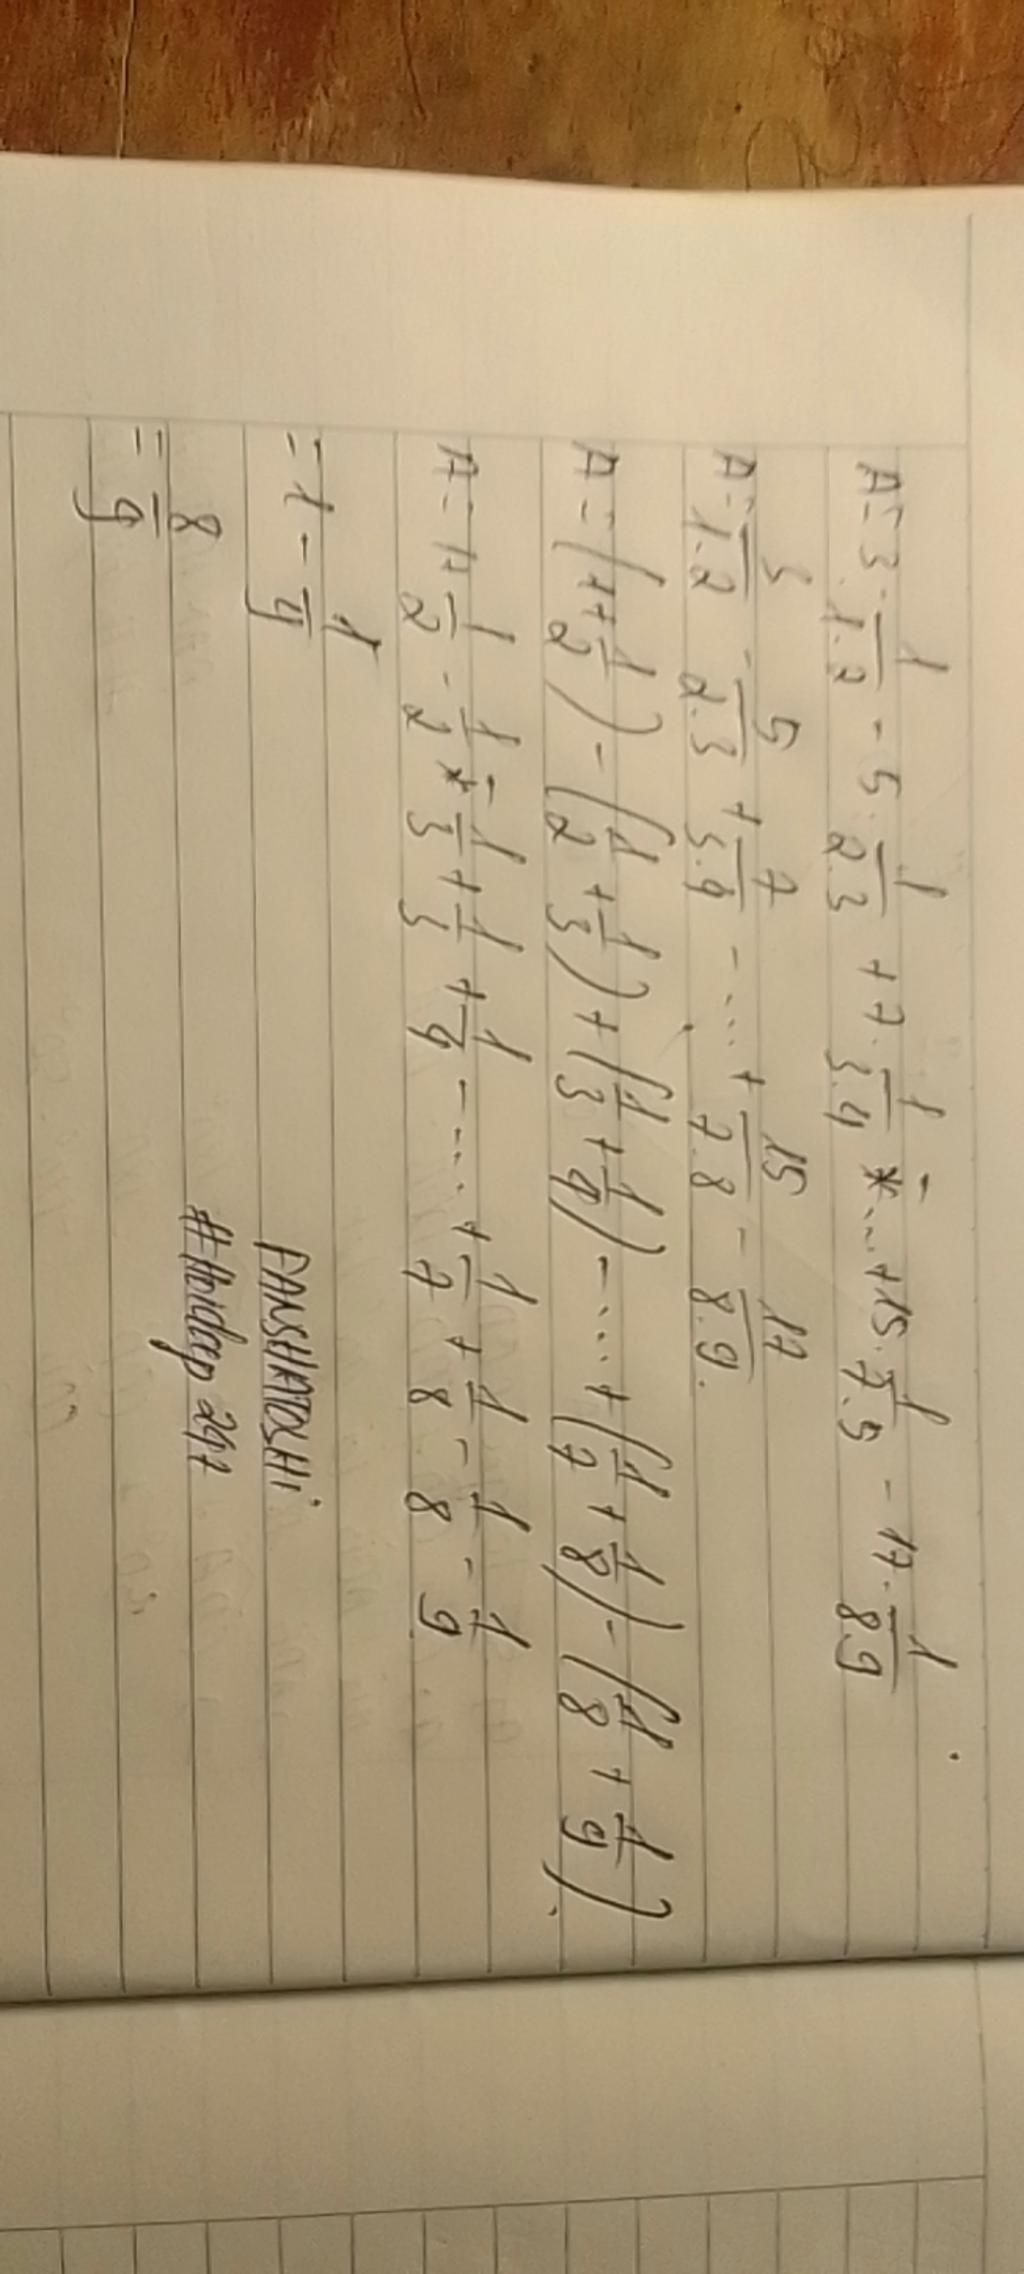 A = 3·1/1.2 - 5·1/2.3 + 7·1/3.4 - ... + 15·1/7.5 - 17·1/8.9
A = 3/1.2 - 5/2.3 + 7/3.4 - ... + 15/7.8 - 17/8.9.
A = (1+1/2) - (1/2 + 1/3) + (1/3 + 1/4) - ... + (1/7 + 1/8) - (1/8 + 1/9).
A = 1+1/2 - 1/2 - 1/3 + 1/3 + 1/4 - ... + 1/7 + 1/8 - 1/8 - 1/9
= 1 - 1/9
= 8/9
FANSHATOSHI
#Hoidap247